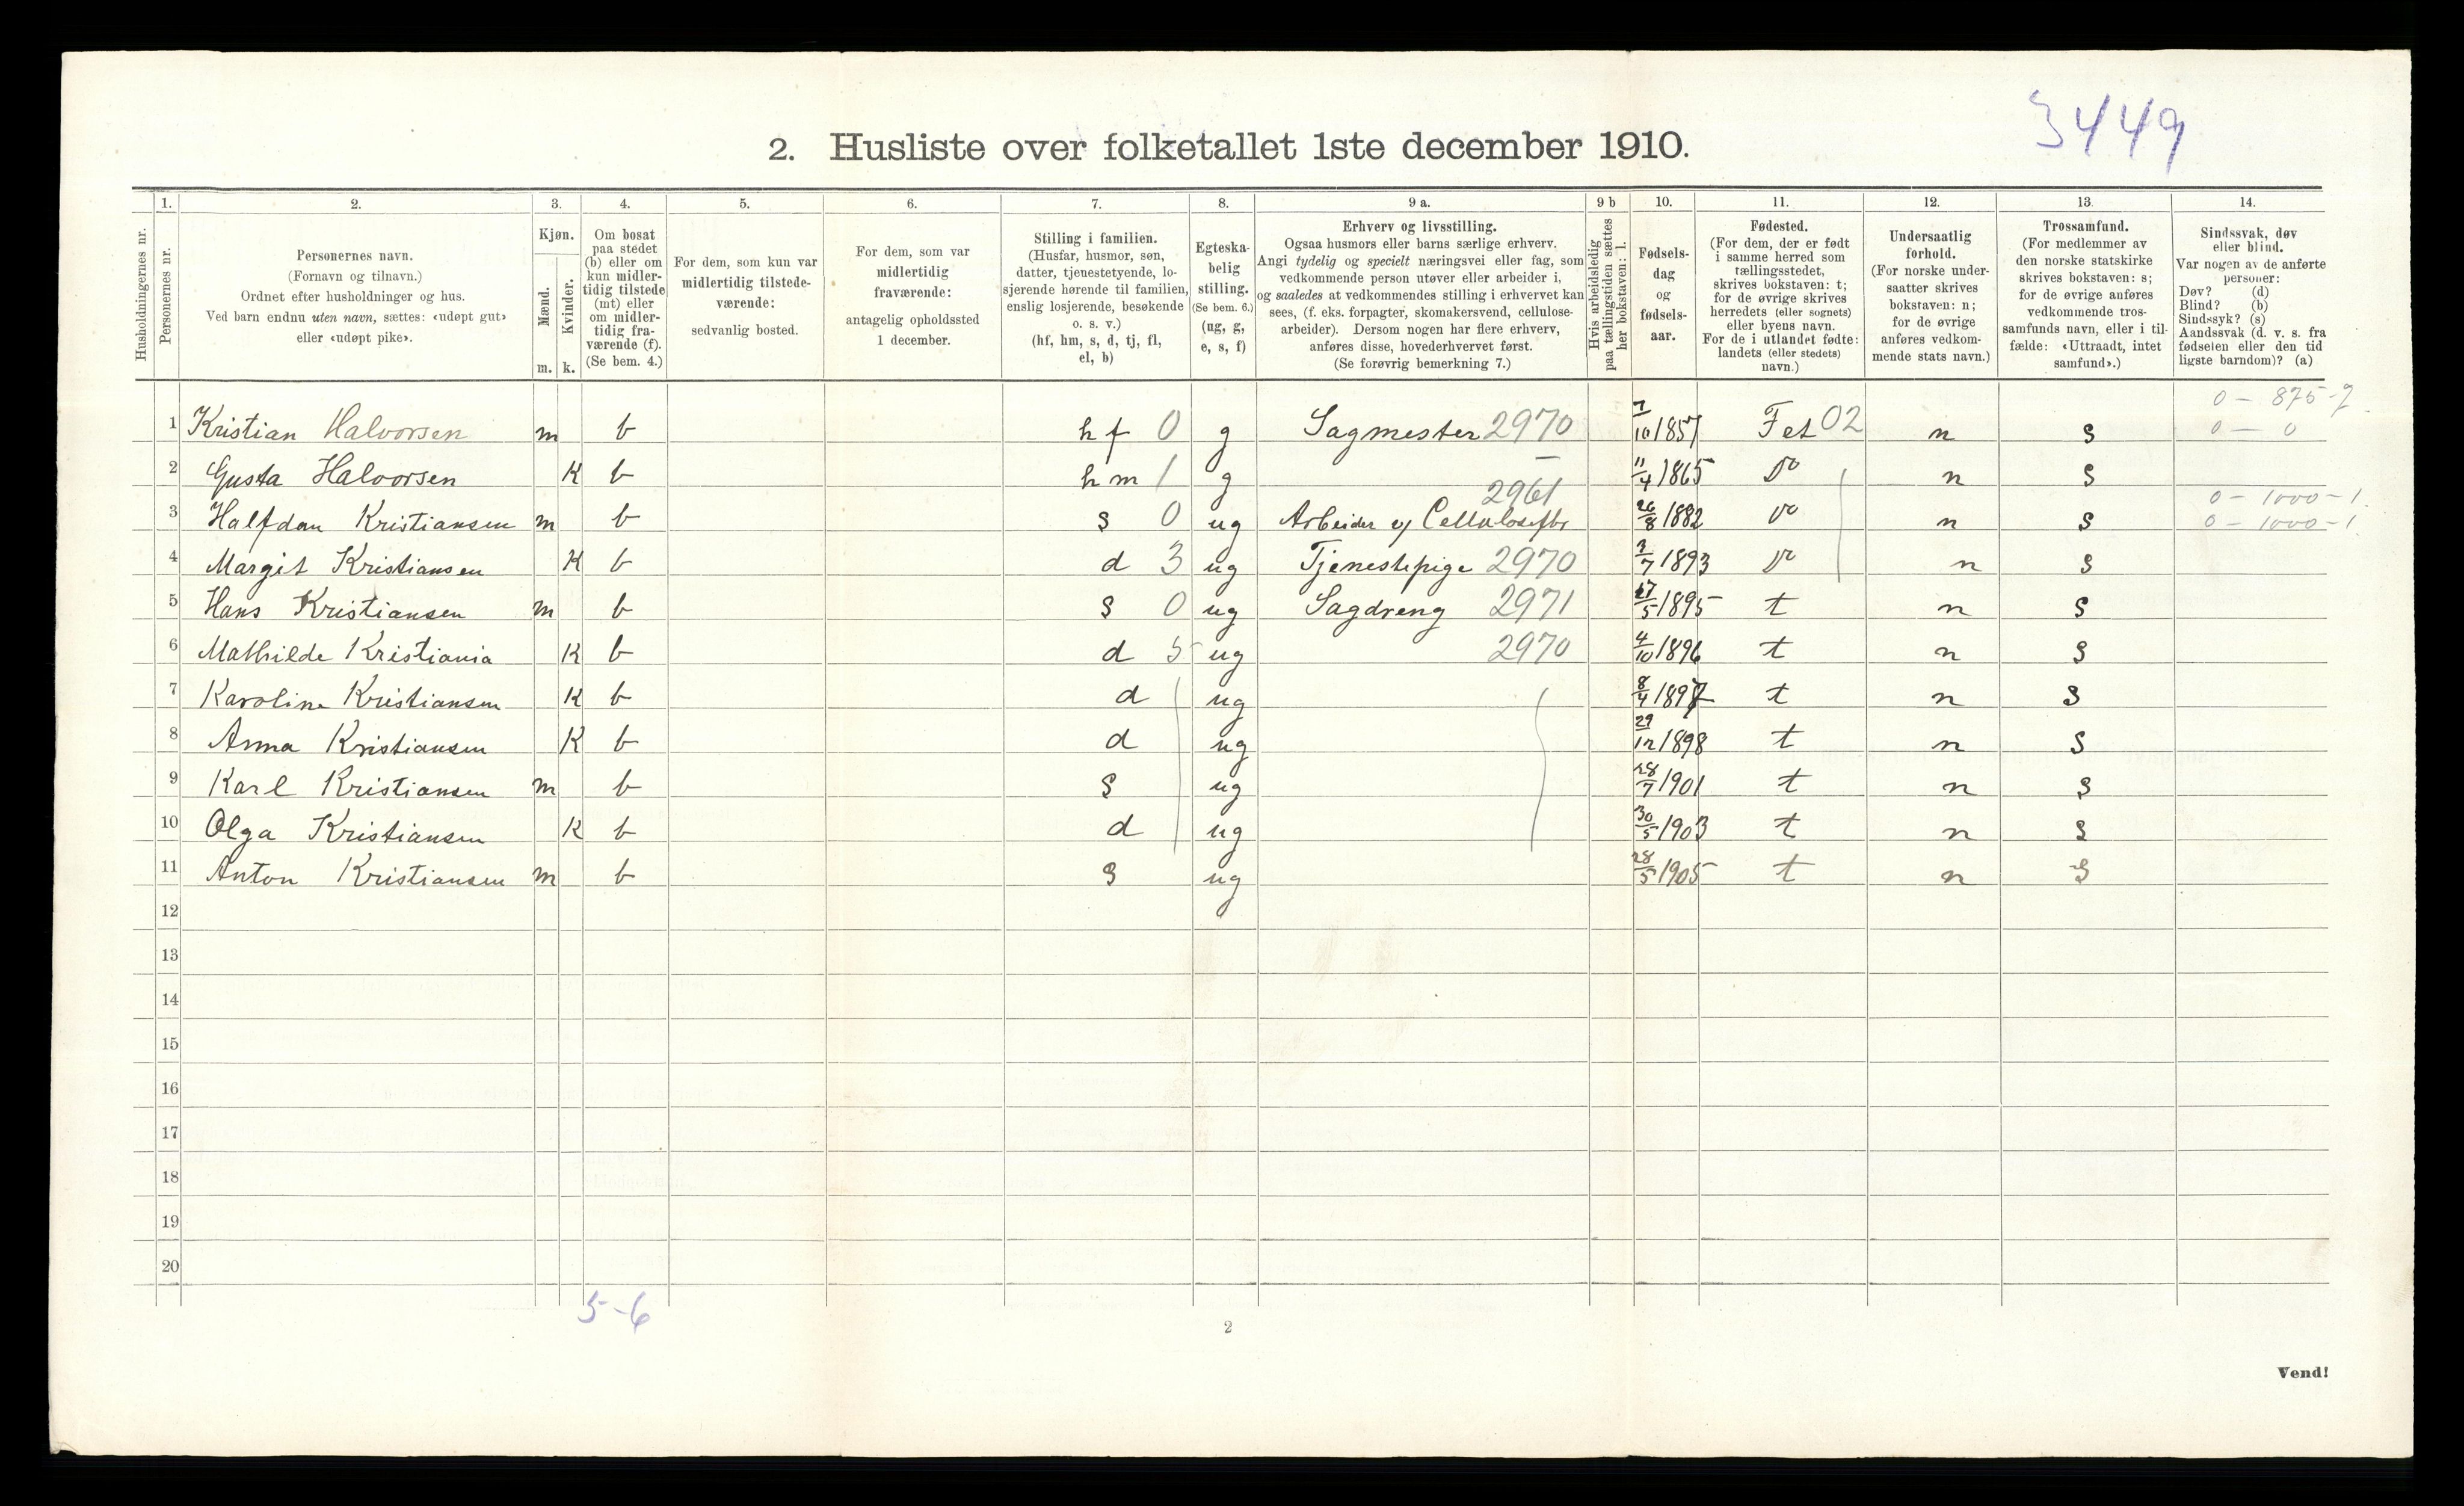 3449
2. Husliste over folketallet 1ste december 1910.
Husholdningernes nr.
1. Personernes nr.
2. Personernes navn. (Fornavn og tilnavn.) Ordnet efter husholdninger og hus. Ved barn endnu uten navn, sættes: «udøpt gut» eller «udøpt pike».
3. Kjøn. Mænd. Kvinder. m. k.
4. Om bosat paa stedet (b) eller om kun midlertidig tilstede (mt) eller om midlertidig fraværende (f). (Se bem. 4.)
5. For dem, som kun var midlertidig tilstedeværende: sedvanlig bosted.
6. For dem, som var midlertidig fraværende: antagelig opholdssted 1 december.
7. Stilling i familien. (Husfar, husmor, søn, datter, tjenestetyende, losjerende hørende til familien, enslig losjerende, besøkende o. s. v.) (hf, hm, s, d, tj, fl, el, b)
8. Egteskabelig stilling. (Se bem. 6.) (ug, g, e, s, f)
9 a. Erhverv og livsstilling. Ogsaa husmors eller barns særlige erhverv. Angi tydelig og specielt næringsvei eller fag, som vedkommende person utøver eller arbeider i, og saaledes at vedkommendes stilling i erhvervet kan sees, (f. eks. forpagter, skomakersvend, cellulosearbeider). Dersom nogen har flere erhverv, anføres disse, hovederhvervet først. (Se forøvrig bemerkning 7.)
9 b Hvis arbeidsledig paa tællingstiden sættes her bokstaven: l.
10. Fødselsdag og fødselsaar.
11. Fødested. (For dem, der er født i samme herred som tællingsstedet, skrives bokstaven: t; for de øvrige skrives herredets (eller sognets) eller byens navn. For de i utlandet fødte: landets (eller stedets) navn.)
12. Undersaatlig forhold. (For norske undersaatter skrives bokstaven: n; for de øvrige anføres vedkommende stats navn.)
13. Trossamfund. (For medlemmer av den norske statskirke skrives bokstaven: s; for de øvrige anføres vedkommende trossamfunds navn, eller i tilfælde: «Uttraadt, intet samfund».)
14. Sindssvak, døv eller blind. Var nogen av de anførte personer: Døv? (d) Blind? (b) Sindssyk? (s) Aandssvak (d. v. s. fra fødselen eller den tidligste barndom)? (a)
0 – 875-7
1 Kristian Halvorsen m b hf 0 g Sagmester 2970 7/10 1857 Fet 02 n s 0 – 0
2 Gusta Halvorsen K b hm 1 g – 11/4 1865 do n s
3 Halfdan Kristiansen m b s 0 ug Arbeider v/ Cellulosefbr 2961 26/8 1882 do n s 0 – 1000 – 1 0 – 1000 – 1
4 Margit Kristiansen K b d 3 ug Tjenestepige 2970 3/7 1893 do n s
5 Hans Kristiansen m b s 0 ug Sagdreng 2971 17/5 1895 t n s
6 Mathilde Kristiania K b d 5 ug 2970 4/10 1896 t n s
7 Karoline Kristiansen K b d ug 8/4 1897 t n s
8 Anna Kristiansen K b d ug 29/12 1898 t n s
9 Karl Kristiansen m b s ug 28/7 1901 t n s
10 Olga Kristiansen K b d ug 30/5 1903 t n s
11 Anton Kristiansen m b s ug 28/5 1905 t n s
12
13
14
15
16
17
18
19
20
5-6
2
Vend!